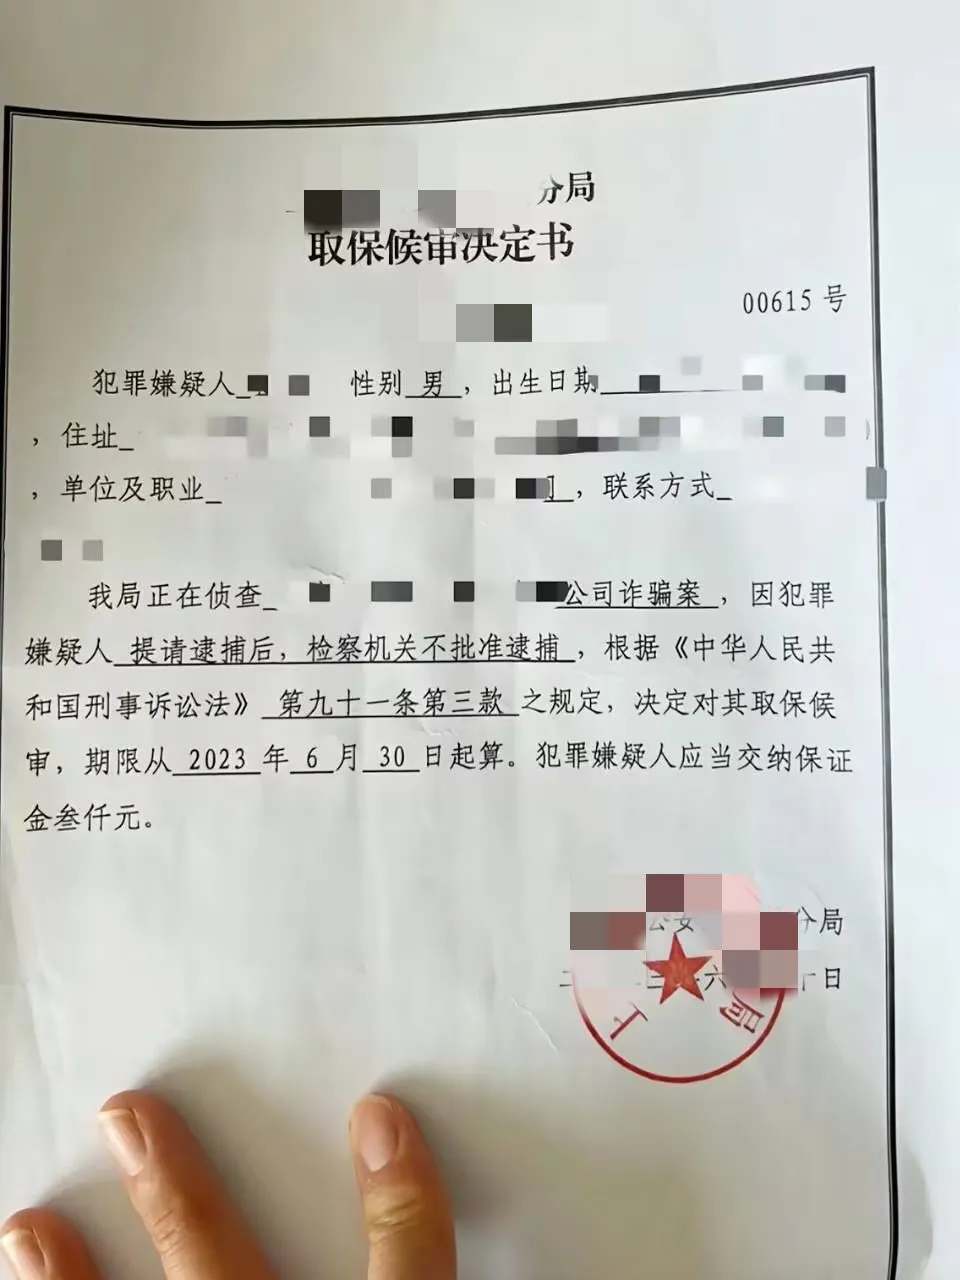 分局
取保候审决定书
00615 号
犯罪嫌疑人 性别 男 ，出生日期
，住址
，单位及职业 ，联系方式
我局正在侦查 公司诈骗案 ，因犯罪
嫌疑人 提请逮捕后，检察机关不批准逮捕 ，根据《中华人民共
和国刑事诉讼法》 第九十一条第三款 之规定，决定对其取保候
审，期限从 2023 年 6 月 30 日起算。犯罪嫌疑人应当交纳保证
金叁仟元。
公安 分局
六 日
局